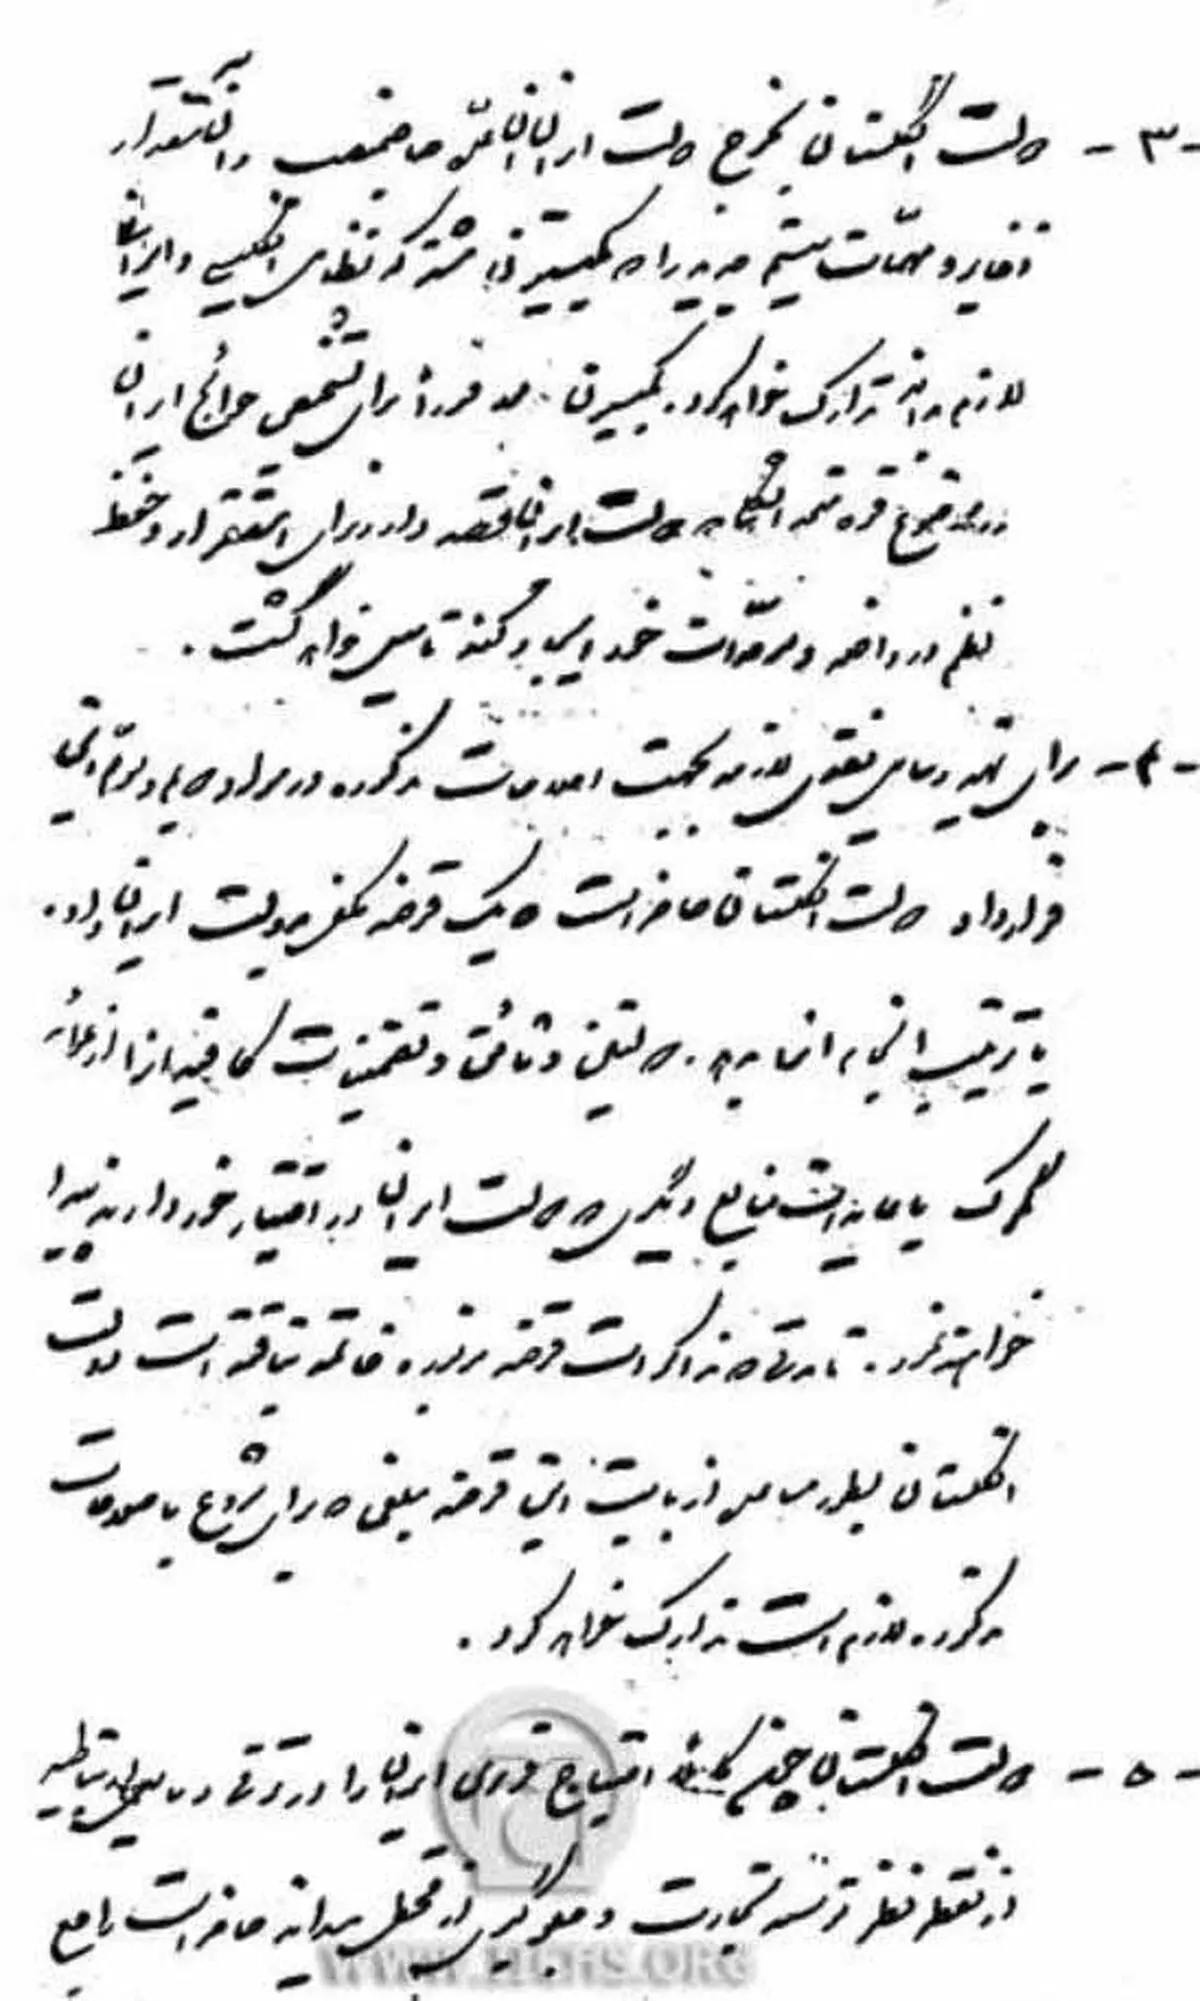 -۳- دولت انگلستان بخرج دولت ایران صاحبمنصب و
ذخایر و مهمات سیستم جدید را که کمیسیونی مشترک نظامی انگلیسی و ایرانی
لازم داند تدارک خواهد کرد. کمیسیون فوراً برای تشخیص حوائج ایران
قوه متحد دولت ایران قصد دارد برای استقرار و حفظ
نظم در داخله و سرحدات خود ایجاد کند تأسیس خواهد گشت.
-۴- برای تهیه وسایل نقدی لازمه بجهت اصلاحات مذکوره در مواد دویم و سوم این
قرارداد دولت انگلستان حاضر است که یک قرضه کافی بدولت ایران داده
یا ترتیب انجام آنرا بدهد. وثائق و تضمینات کافیه از عایدات
گمرک یا عایدات منابع دیگری که دولت ایران در اختیار خود دارد پیدا
خواهند نمود. تا مدتی که مذاکرات قرضه مزبوره خاتمه نیافته است دولت
انگلستان بطور مساعده از بابت این قرضه مبلغی که برای شروع باصلاحات
مذکوره لازم است تدارک خواهد کرد.
-۵- دولت انگلستان احتیاج فوری ایران را در ترقی وسایل نقلیه
از نقطه نظر توسعه تجارت و جلوگیری از قحطی میداند حاضر است راجع
WWW.IICHS.ORG